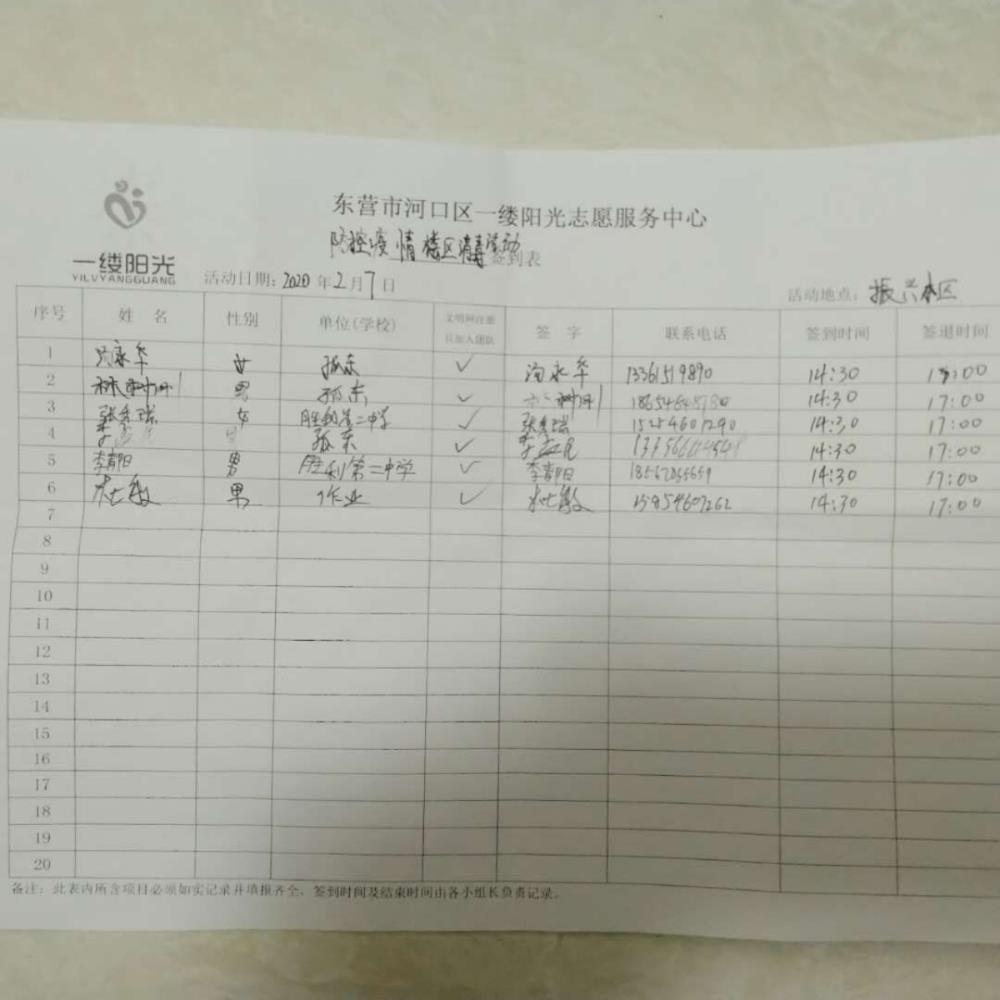 一缕阳光
YILVYANGGUANG
东营市河口区一缕阳光志愿服务中心
防控疫情楼区消毒活动签到表
活动日期:2020年2月7日
活动地点:振兴小区
序号 姓名 性别 单位(学校) 文明网注册且加入团队 签字 联系电话 签到时间 签退时间
1 永华 女 孤东 ✓ 永华 13361519890 14:30 17:00
2 林 男 孤东 ✓ 14:30 17:00
3 张 女 胜利第二中学 ✓ 张 15254601290 14:30 17:00
4 李 男 孤东 ✓ 李 14:30 17:00
5 李青阳 男 胜利第二中学 ✓ 李青阳 14:30 17:00
6 男 作业 ✓ 15854607262 14:30 17:00
7
8
9
10
11
12
13
14
15
16
17
18
19
20
备注:此表内所含项目必须如实记录并填报齐全、签到时间及结束时间由各小组长负责记录。